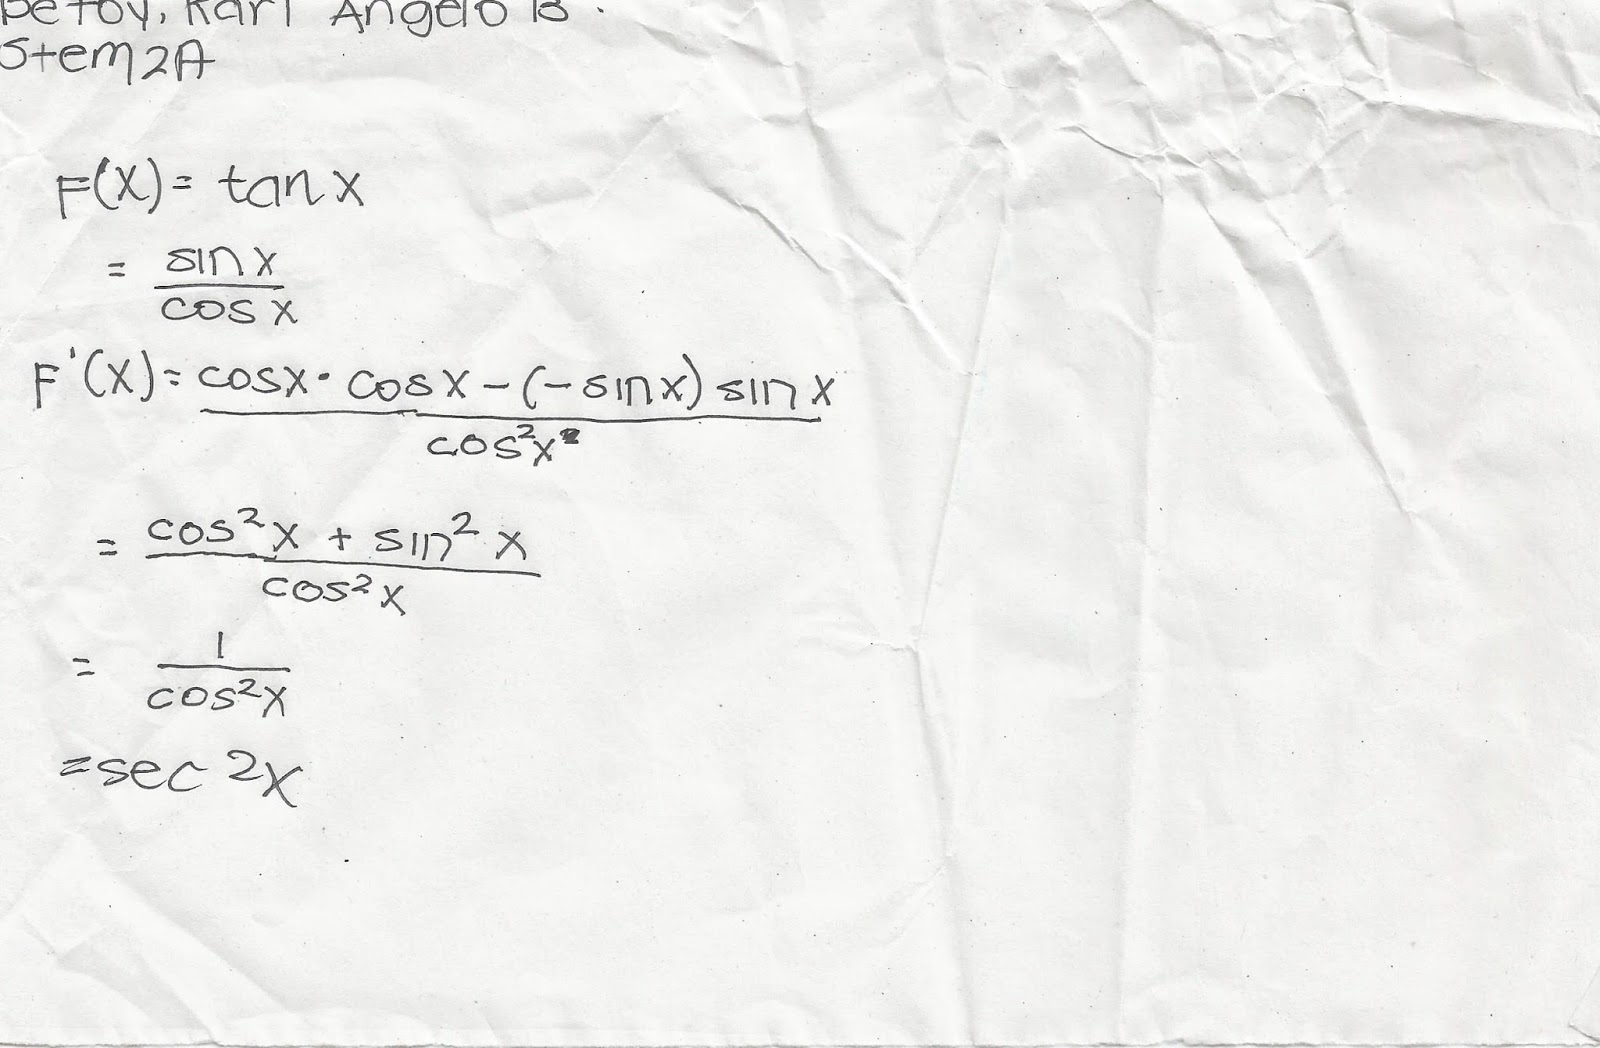 Karl Angelo B.
Stem2A
F(x) = tan x
= sin x / cos x
F'(x) = cosx · cosx - (-sinx) sinx / cos²x
= cos²x + sin²x / cos²x
= 1 / cos²x
= sec 2x